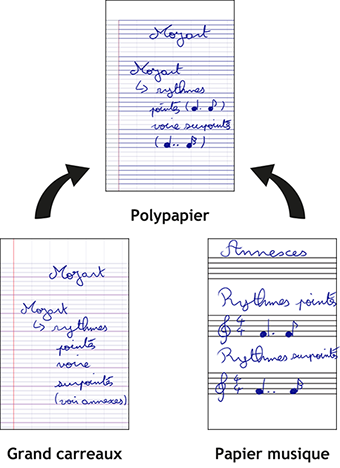 Mozart
Mozart
↳ rythmes
pointés (♩. ♪)
voire surpointés
(♩.. ♬)
Polypapier
Mozart
Mozart
↳ rythmes
pointés
voire
surpointés
(voir annexes)
Grand carreaux
Annexes
Rythmes pointés
4/4
Rythmes surpointés
4/4
Papier musique